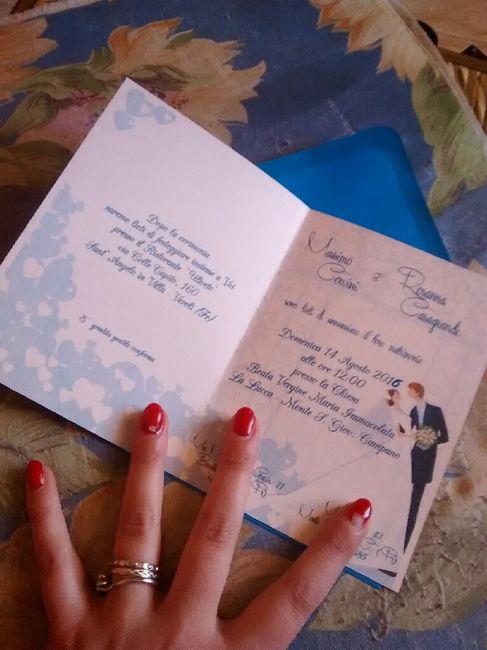 Dopo la cerimonia
saremo lieti di festeggiare insieme a Voi
presso il Ristorante "Uliveto"
via Colle Capito, 160
Sant' Angelo in Villa - Veroli (Fr)
E' gradita gentile conferma
Massimo
Cervini
e
Rosanna
Casagrande
sono lieti di annunciare il loro matrimonio
Domenica 14 Agosto 2016
alle ore 12.00
presso la Chiesa
Beata Vergine Maria Immacolata
La Lucca - Monte S. Giov. Campano